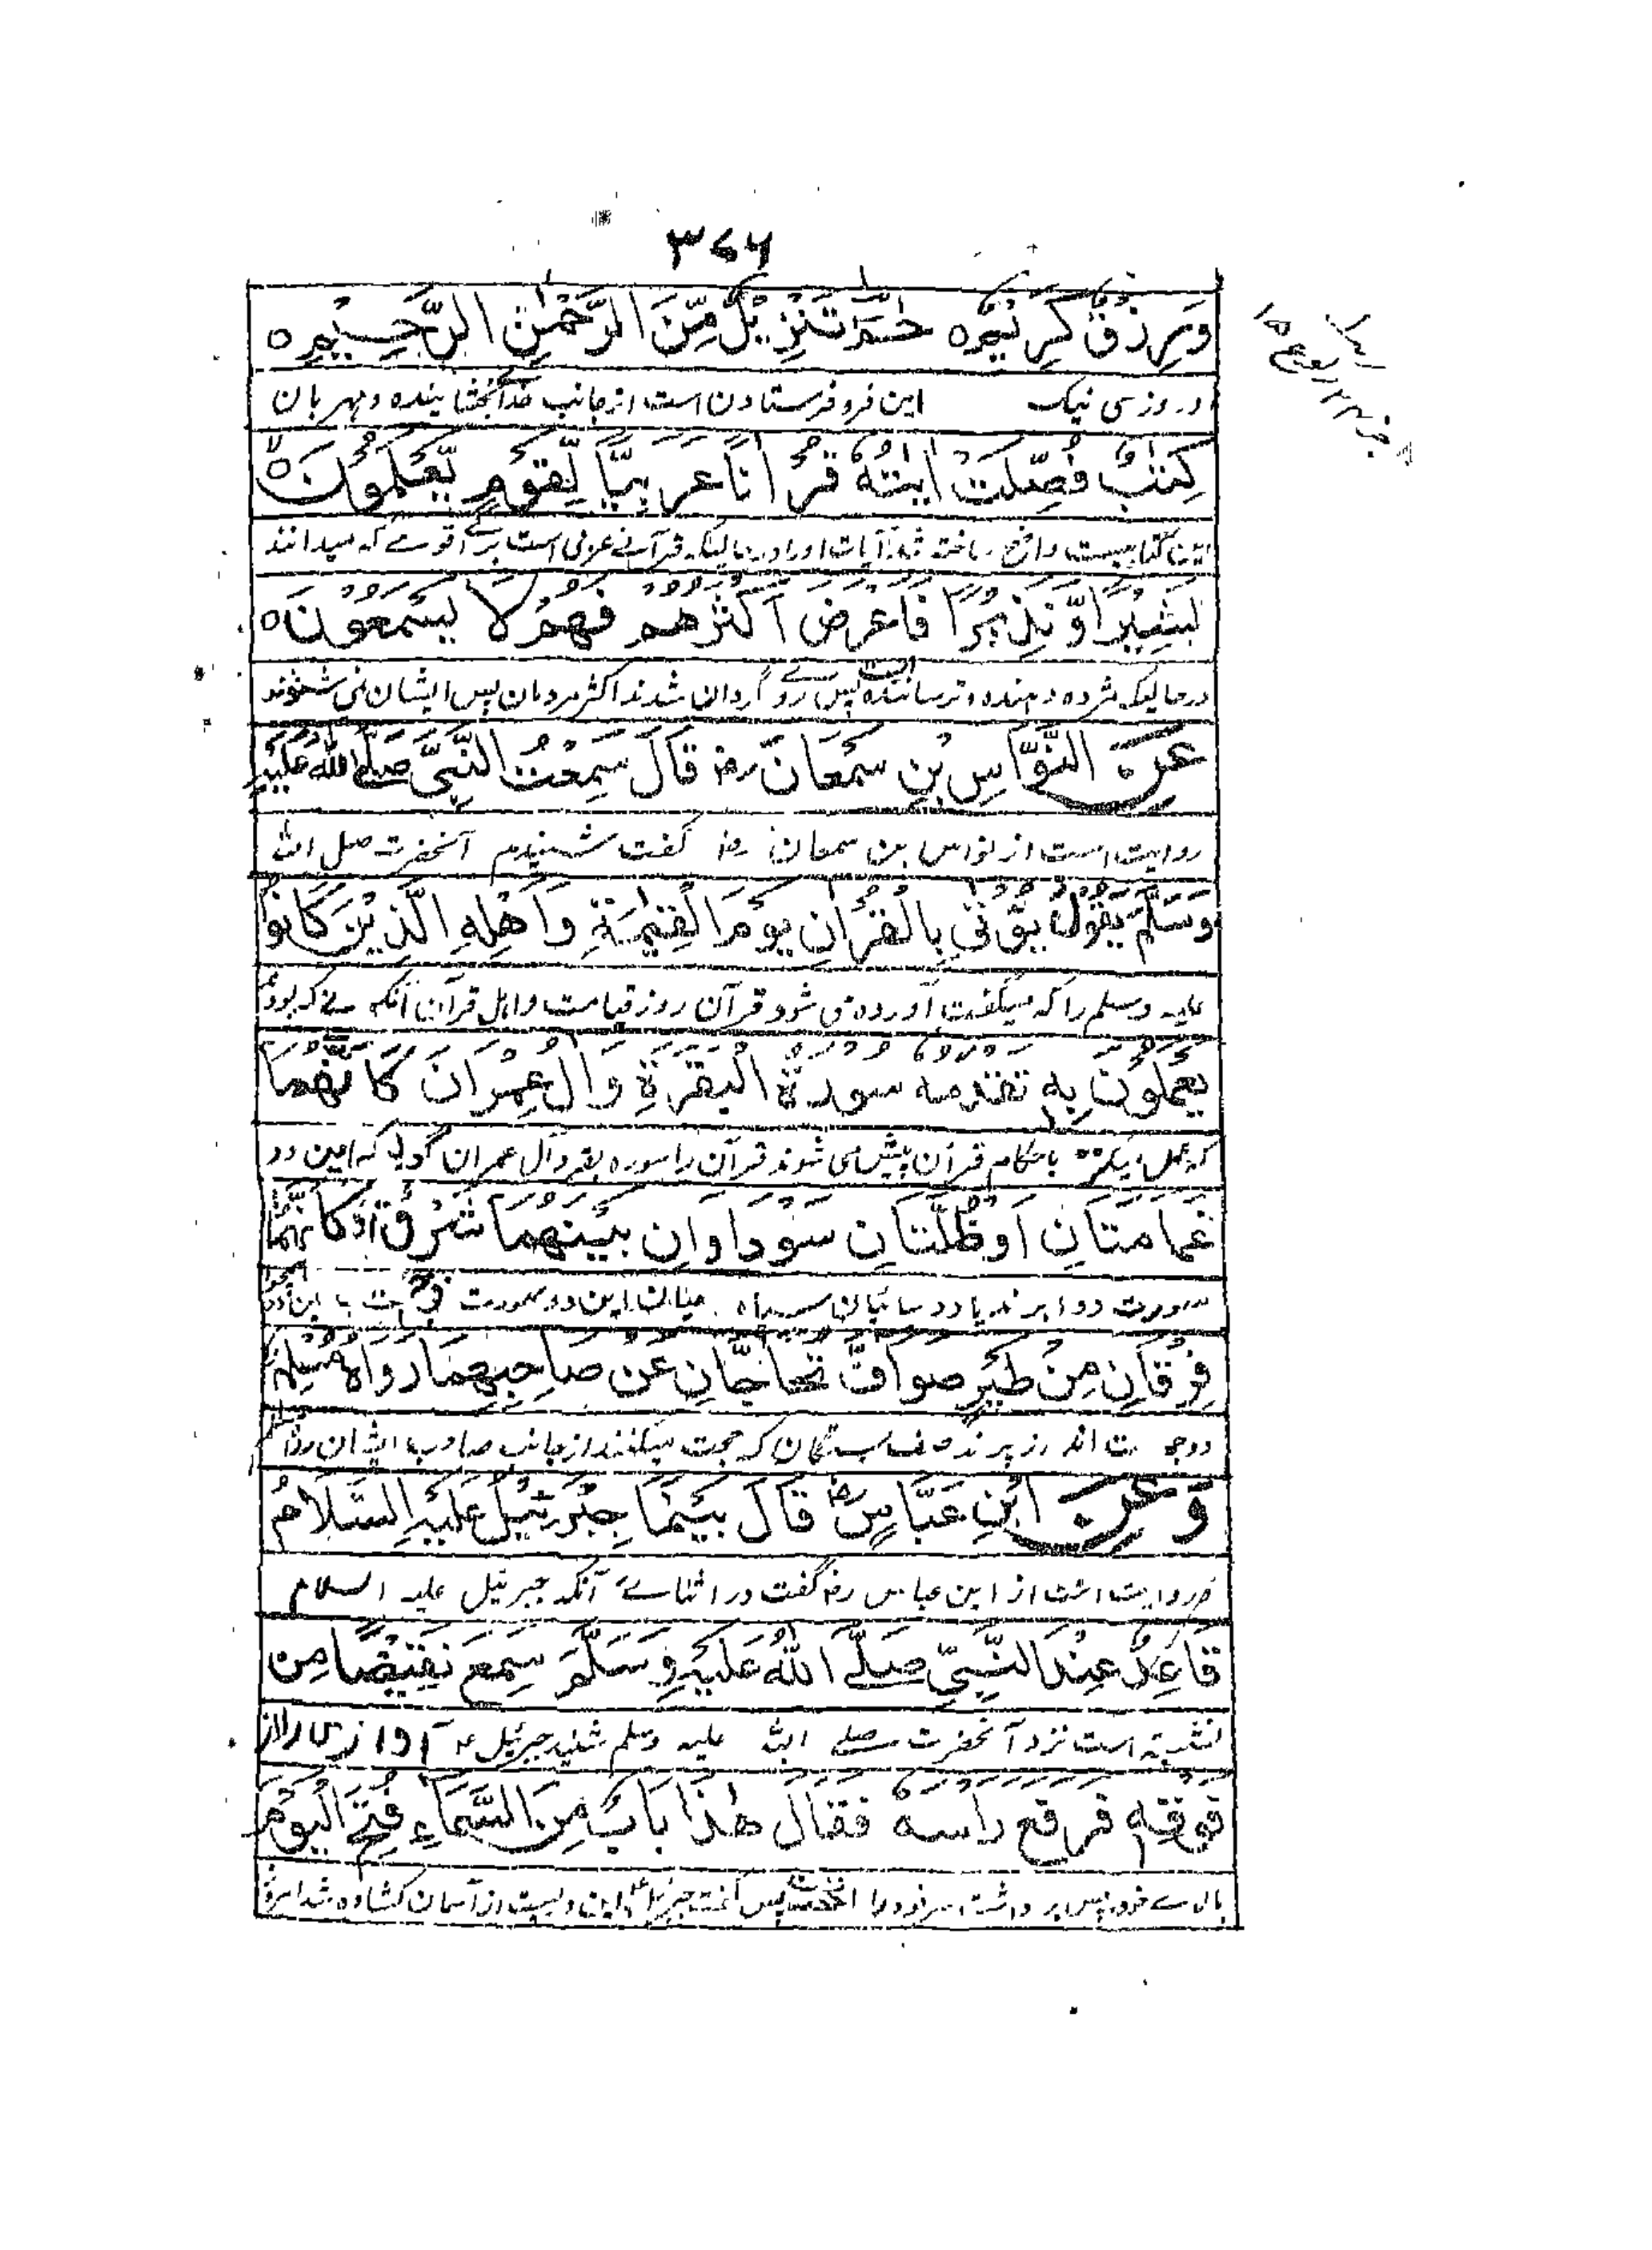 ۳۷۶
وَّرِزْقٌ كَرِيْمٌ ٥ حٰمٓ تَنْزِيْلٌ مِّنَ الرَّحْمٰنِ الرَّحِيْمِ ٥
و روزی نیک این فرو فرستادن است از جانب خدا بخشاینده و مهربان
كِتٰبٌ فُصِّلَتْ اٰيٰتُهٗ قُرْاٰنًا عَرَبِيًّا لِّقَوْمٍ يَّعْلَمُوْنَ ٥
این کتابیست واضح ساخته شد آیات او را در حالیکه قرآنی عربی است برای قومے که میدانند
بَشِيْرًا وَّنَذِيْرًا فَاَعْرَضَ اَكْثَرُهُمْ فَهُمْ لَا يَسْمَعُوْنَ ٥
درحالیکه مژده دهنده و ترساننده است پس روے گردان شدند اکثر مردمان پس ایشان نمی شنوند
عَنِ النَّوَّاسِ بْنِ سَمْعَانَ رض قَالَ سَمِعْتُ النَّبِيَّ صَلَّى اللّٰهُ عَلَيْهِ
روایت است از نواس بن سمعان رض گفت شنیدم آنحضرت صلی الله
وَسَلَّمَ يَقُوْلُ يُؤْتٰى بِالْقُرْاٰنِ يَوْمَ الْقِيٰمَةِ وَاَهْلِهِ الَّذِيْنَ كَانُوْا
علیه وسلم را که میگفت آورده می شود قرآن روز قیامت و اهل قرآن آنکه بودند
يَعْمَلُوْنَ بِهٖ تَقْدُمُهٗ سُوْرَةُ الْبَقَرَةِ وَاٰلِ عِمْرَانَ كَاَنَّهُمَا
که عمل باحکام قرآن پیش می شوند قرآن را سوره بقر و آل عمران گویا که این دو
غَمَامَتَانِ اَوْ ظُلَّتَانِ سَوْدَاوَانِ بَيْنَهُمَا شَرْقٌ اَوْ كَاَنَّهُمَا
سورت دو ابر ند یا دو سائبان سیاه میان این دو سورت
فِرْقَانِ مِنْ طَيْرٍ صَوَافَّ تُحَاجَّانِ عَنْ صَاحِبِهِمَا رَوَاهُ مُسْلِمٌ
اند از پرنده که حجت میکنند از جانب صاحب ایشان
وَعَنِ ابْنِ عَبَّاسٍ رض قَالَ بَيْنَمَا جِبْرَئِيْلُ عَلَيْهِ السَّلَامُ
و روایت است از ابن عباس رض گفت در اثنائے آنکه جبرئیل علیه السلام
قَاعِدٌ عِنْدَ النَّبِيِّ صَلَّى اللّٰهُ عَلَيْهِ وَسَلَّمَ سَمِعَ نَقِيْضًا مِنْ
نشسته است نزد آنحضرت صلے الله علیه وسلم شنید جبرئیل ع آوازی را از
فَوْقِهٖ فَرَفَعَ رَاْسَهٗ فَقَالَ هٰذَا بَابٌ مِنَ السَّمَاءِ فُتِحَ الْيَوْمَ
بالاے خود پس برداشت سر خود را پس گفت جبرئیل این از آسمان کشاده شد امروز